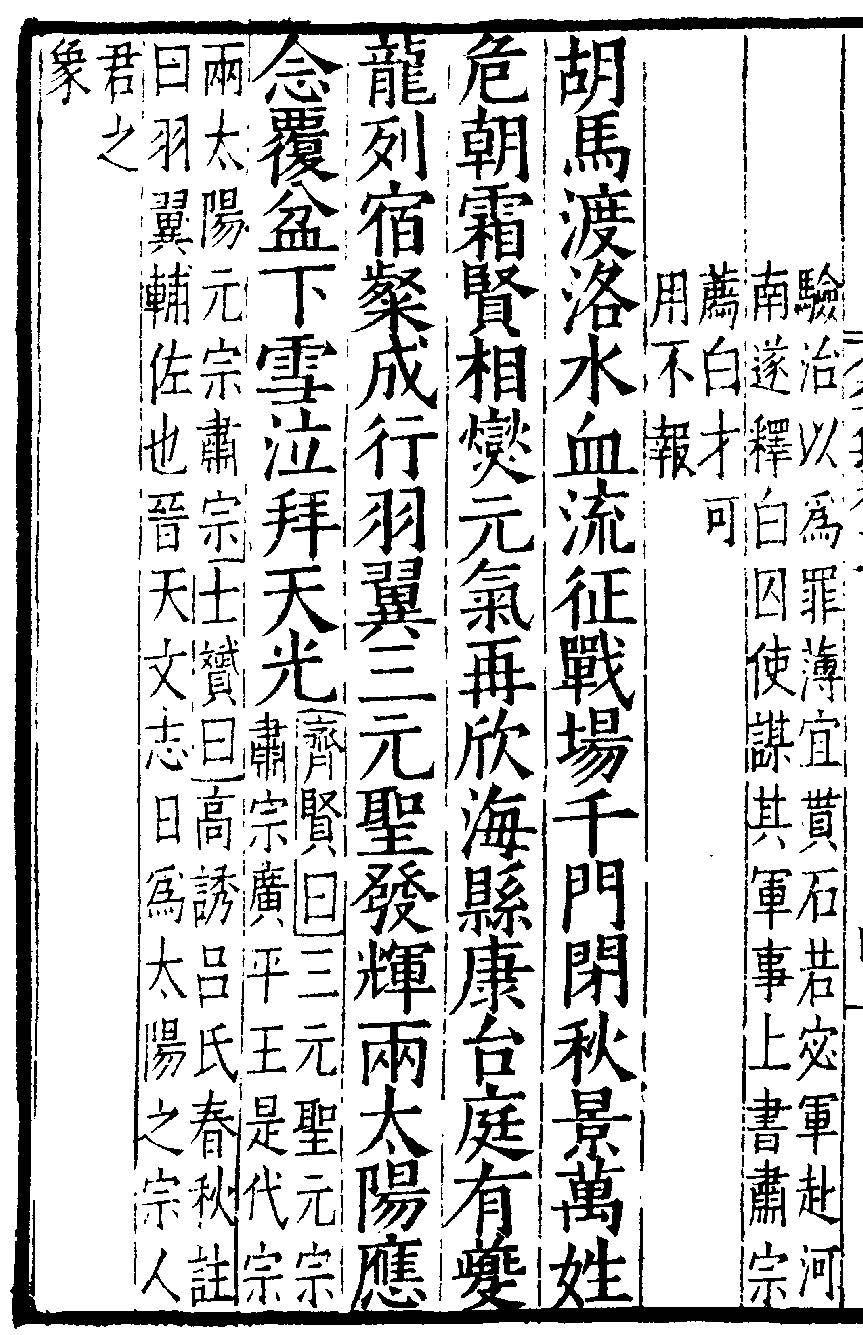 驗治以爲罪薄宜貰而若宓軍赴河
南遂釋白囚使謀其軍事上書肅宗
薦白才可
用不報
胡馬渡洛水血流征戰場千門閉秋景萬姓
危朝霜賢相燮元氣再欣海縣康台庭有夔
龍列宿粲成行羽翼三元聖發輝兩太陽應
念覆盆下雪泣拜天光
齊賢曰三元聖元宗
肅宗廣平王是代宗
兩太陽元宗肅宗士贇曰高誘呂氏春秋註
曰羽翼輔佐也晉天文志日爲太陽之宗人
君之
象